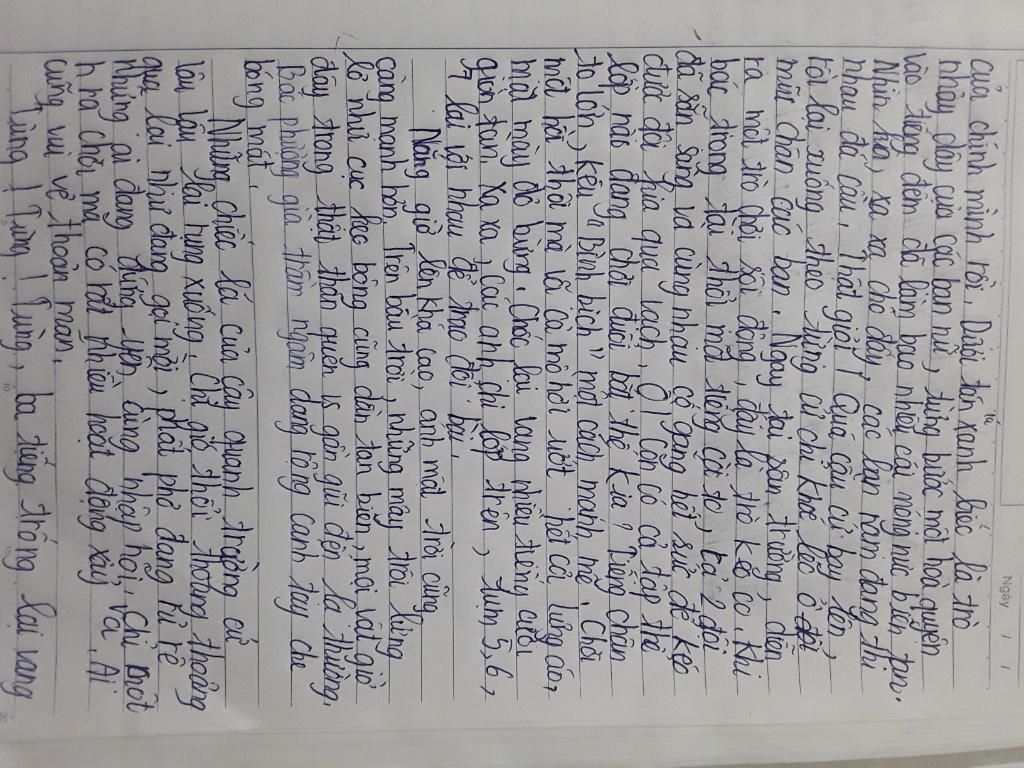 Ngày / /
của chính mình rồi. Dưới tán xanh biếc là trò
nhảy dây của các bạn nữ, từng bước một hoà quyện
vào tiếng đếm đã làm bao nhiêu cái nóng nực biến tan.
Nhìn kìa, xa xa chỗ đấy, các bạn nam đang thi
nhau đá cầu. Thật giỏi! Quả cầu cứ bay lên,
rồi lại xuống theo từng cử chỉ khéo léo ở
mũi chân các bạn. Ngay tại sân trường, diễn
ra một trò chơi sôi động, đấy là trò kéo co. Khi
bác trọng tài thổi một tiếng còi to, cả 2 đội
đã sẵn sàng và cùng nhau cố gắng hết sức để kéo
được đội kia qua vạch. Ồ! Còn có cả tập thể
lớp nào đang chơi đuổi bắt thế kia? Tiếng chân
to lớn, kêu "Bình bịch" một cách mạnh mẽ. Chơi
một hồi thôi mà vã cả mồ hôi ướt hết cả lưng áo,
mặt mày đỏ bừng. Chốc lại vang nhiều tiếng cười
giòn tan. Xa xa, các anh chị lớp trên, túm 5, 6,
7 lại với nhau để trao đổi bài.
Nắng giờ lên khá cao, ánh mặt trời cũng
càng mạnh hơn. Trên bầu trời, những mây trôi lững
lờ như cục kẹo bông cũng dần tan biến, mọi vật giờ
đây trong thật thân quen và gần gũi đến lạ thường.
Bác phượng già trầm ngâm dang rộng cánh tay che
bóng mát.
Những chiếc lá của cây quanh trường cứ
lâu lâu lại rụng xuống. Chị gió thổi thoang thoảng
qua lại như đang gọi mời, phất phơ đang rủ rê
những ai đang đứng yên cùng nhập hội. Chỉ một
h ra chơi mà có rất nhiều hoạt động xảy ra. Ai
cũng vui vẻ thoản mản.
Tùng! Tùng! Tùng, ba tiếng trống lại vang